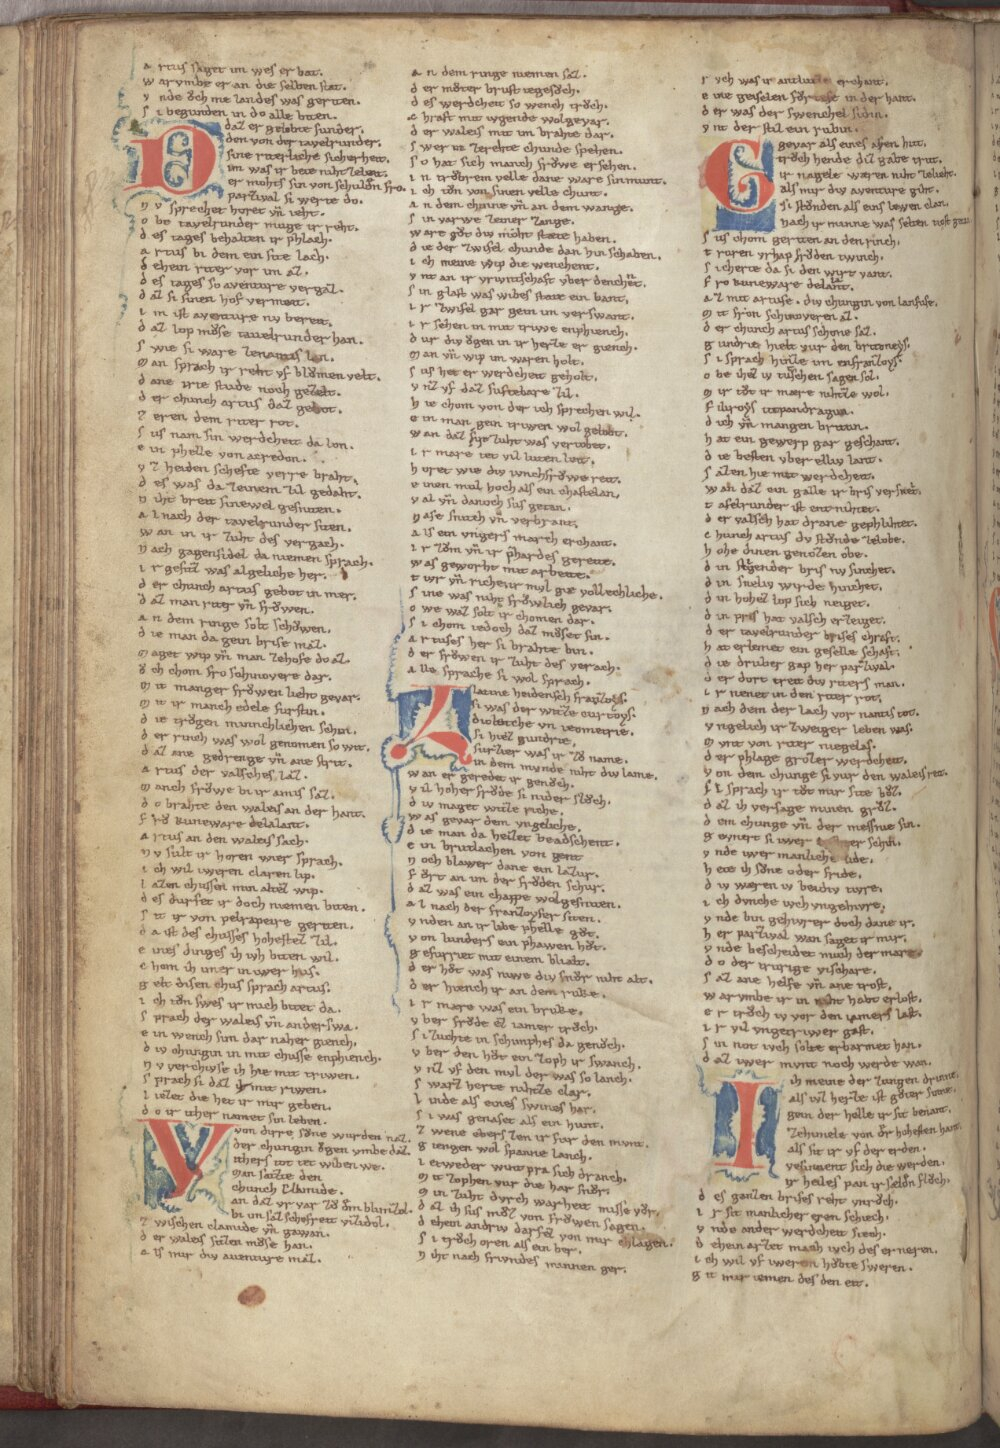 artus saget im wes er bat.
warvmbe er an die selben stat.
vnde och me landes was geriten.
si begunden in do alle biten.
Daz er gelobte sunder.
den von der tavelrunder.
sine riterliche sicherheit.
im was ir bete niht leit.
er mohts sin von schulden fro.
parzival si werte do.
nv sprechet horet vn̄ ieht.
obe tavelrunder muge ir reht.
des tages behalten ir phlach.
artus bi dem ein site lach.
dehein riter vor im az.
des tages so aventure vergaz.
daz si sinen hof vermeit.
im ist aventure nv bereit.
daz lop mose tavelrunder han.
swie si ware ze nantis lan.
man sprach ir reht vf blomen velt.
dane irte stude noch gezelt.
der chunch artus daz gebot.
zeren dem riter rot.
sus nam sin werdcheit da lon.
ein phelle von acredon.
vz heiden schefte verre braht.
des was da zeinem zil gedaht.
niht breit sinewel gesniten.
al nach der tavelrunder siten.
wan in ir zuht des veriach.
nach gagensidel da niemen sprach.
ir gesitz was al geliche her.
der chunch artus gebot in mer.
daz man riter vn̄ frowen.
an dem ringe solt schowen.
die man da gein brise maz.
maget wip vn̄ man zehofe do az.
och chom fro schinovere dar.
mit manger frowen lieht gevar.
mit ir manch edele furstin.
die trogen minnchlichen schin.
der rinch was wol genomen so wit.
daz ane gedrenge vn̄ ane strit.
artus der valsches laz.
manch frowe bi ir amis saz.
do brahte den waleis an der hant.
fro kuneware delalant.
artus an den waleis sach.
nv sult ir horen wier sprach.
ich wil iweren claren lip.
lazen chussen min altez wip.
des durfet ir doch niemen biten.
sit ir von pelrapeire geriten.
da ist des chusses hohestez zil.
eines dinges ih ivh biten wil.
chom ih imer in iwer hus.
gelt disen chus sprach artus.
ich ton swes ir mich bitet da.
sprach der waleis vn̄ anderswa.
ein wench sim dar naher giench.
div chungin in mit chusse enphiench.
nv verchiuse ih hie mit triwen.
sprach si daz ir mit riwen.
liezet die het ir mir geben.
do ir ither namet sin leben.
Von dirre sone wurden naz.
der chungin ogen vmbe daz.
ithers tot tet wiben we.
man sazte den
chunch Clamide.
an daz vvar zo dem blimizol.
bi im saz schofreit vilidol.
zwischen clamide vn̄ gawan.
der waleis sitzen mose han.
als mir div aventure maz.
an dem ringe niemen saz.
der moter brust ie gesoch.
des werdcheit so wench troch.
chraft mit iugende wol gevar.
der waleis mit im brahte dar.
swer in ze rehte chunde spehen.
so hat sich manch frowe ersehen.
in trobrem velle dane ware sin munt.
ich ton von sinen velle chunt.
an dem chinne vn̄ an dem wange.
sin varwe zeiner zange.
ware got div moht state haben.
die der zwifel chunde dar hin schaben.
ich meine wip die wenchent.
vnt an ir vriwntschaft vber denchēt.
sin glast was wibes state ein bant.
ir zwifel gar gein im verswant.
ir sehen in mit triwe enphiench.
dur div ogen in ir herze er giench.
man vn̄ wip im waren holt.
sus het er werdcheit geholt.
vnz vf daz suftebare zil.
hie chom von der ich sprechen wil.
ein man gein triwen wol gelobet.
wan daz svo zuht was vertobet.
ir mare tet vil luten leit.
horet wie div ivnchfrowe reit.
einen mul hoch als ein chastelan.
val vn̄ danoch sus getan.
nase snitich vn̄ verbrant.
als ein vngers march erchant.
ir zom vn̄ ir phardes gereite.
was geworht mit arbeite.
tivr vn̄ riche ir myl gie vollechliche.
sine was niht frowlich gevar.
owe waz solt ir chomen dar.
si chom iedoch daz moset sin.
artuses her si brahte pin.
der frowen ir zuht des veriach.
alle sprache si wol sprach.
Latine heidensch franzoys.
si was der witze curtoys.
dioletiche vn̄ ieometrie.
si hiez gundrie.
surzier was ir zo name.
in dem mvnde niht div lame.
wan er geredet ir genoch.
vil hoher frode si nider sloch.
div maget witze riche.
was gevar dem vngeliche.
die man da heizet beadschent.
ein brutlachen von gent
noch blawer dane ein lazur.
fort an im der froden schur.
daz was ein chappe wol gesniten.
al nach der franzoyser siten.
vnden an ir libe phelle got.
von lunders ein phawen hot.
gefurriet mit einem blialt.
der hot was niwe div snor niht alt.
der hiench ir an dem ruke.
ir mære was ein bruke.
vber frode ez iamer troch.
si zuchte in schimphes da genoch.
vber den hot ein zoph ir swanch.
vnz vf den myl der was so lanch.
swarz herte niht ze clar.
linde als eines swines har.
si was genaset als ein hunt.
zwene ebers zen ir fur den mvnt.
giengen wol spanne lanch.
ietweder wint pra sich dranch.
mit zophen vur die har snor.
min zuht dvrch warheit misse vor.
daz ih sus moz von frowen sagen.
dehein andriv darfez von mir chlagen.
si troch oren als ein ber.
niht nach frivndes minnen ger.
rvch was ir antlutze erchant.
eine geiselen forte si in der hant.
der was der swenchel sidin.
vnt der stil ein rubin.
Gevar als eines affen hut.
troch hende diz gabe trut.
ir nagele waren niht ze lieht.
als mir div aventure giht.
si stonden als eins lewen clan.
nach ir minne was selten
sus chom geriten an den rinch.
truren vrhap froden twinch.
sicherte da si den wirt vant.
fro kuneware delalant.
az mit artuse. div chungin von lanfuse.
mit fron schinoveren az.
der chunch artus schone saz.
gundrie hielt vur den brituneys.
si sprach hinze im enfranzoys.
obe ihez iv tuschen sagen sol.
mir tot ir mære niht ze wol.
filuroys utpandragun.
dich vn̄ mangen britun.
hat ein gewerp gar geschant.
die besten vber elliv lant.
sazen hie mit werdcheit.
wan daz ein galle ir bris versneit.
tafelrunder ist entnihtet.
der valsch hat drane gephlihtet.
chunch artus dv stonde ze lobe.
hohe dinen genozen obe.
din stigender bris nv sinchet.
din snelliv wirde hinchet.
din hohez lop sich neiget.
din pris hat valsch erzeiget.
der tavelrunder brises chraft.
hat erlemet ein geselle schaft.
die druber gap her parzival.
der dort treit div riters man.
ir nenet in den riter rot.
nach dem der lach vor nantis tot.
vngelich ir zweiger leben was.
mvnt von riter niegelas.
der phlage grozer werdcheit.
von dem chunge si vur den waleis reit.
si sprach ir tot mir site boz.
daz ih versage minen groz.
dem chunge vn̄ der messnie sin.
geunert si iwer schin.
vnde iwer manliche lide.
hette ih sone oder fride.
div wæren iv beidiv tivre.
ich dvnche ivch vngehivre.
vnde bin gehivrer doch dane ir.
her parzival wan saget ir mir.
vnde bescheidet mich der mare.
do der trurige vischare.
saz ane helfe vn̄ ane trost.
warvmbe ir in niht habt erlost.
er troch iv vor den iamers last.
ir vil vngetriwer gast.
sin not ivch solte erbarmet han.
daz iwer mvnt noch werde wan.
Ih meine der zungen drinne.
als viz herze ist goter sinne.
gein der helle ir sit beiant.
zehimele von der hohesten hant.
als sit ir vf der erden.
vesinnent sich die werden.
ir heiles pan ir selden floch.
des ganzen brises reht vnroch.
ir sit manlicher eren schiech.
vnde ander werdcheit siech.
dehein arzet mach ivch des erneren.
ich wil vf iweren hobte sweren.
git mir iemen des den eit.